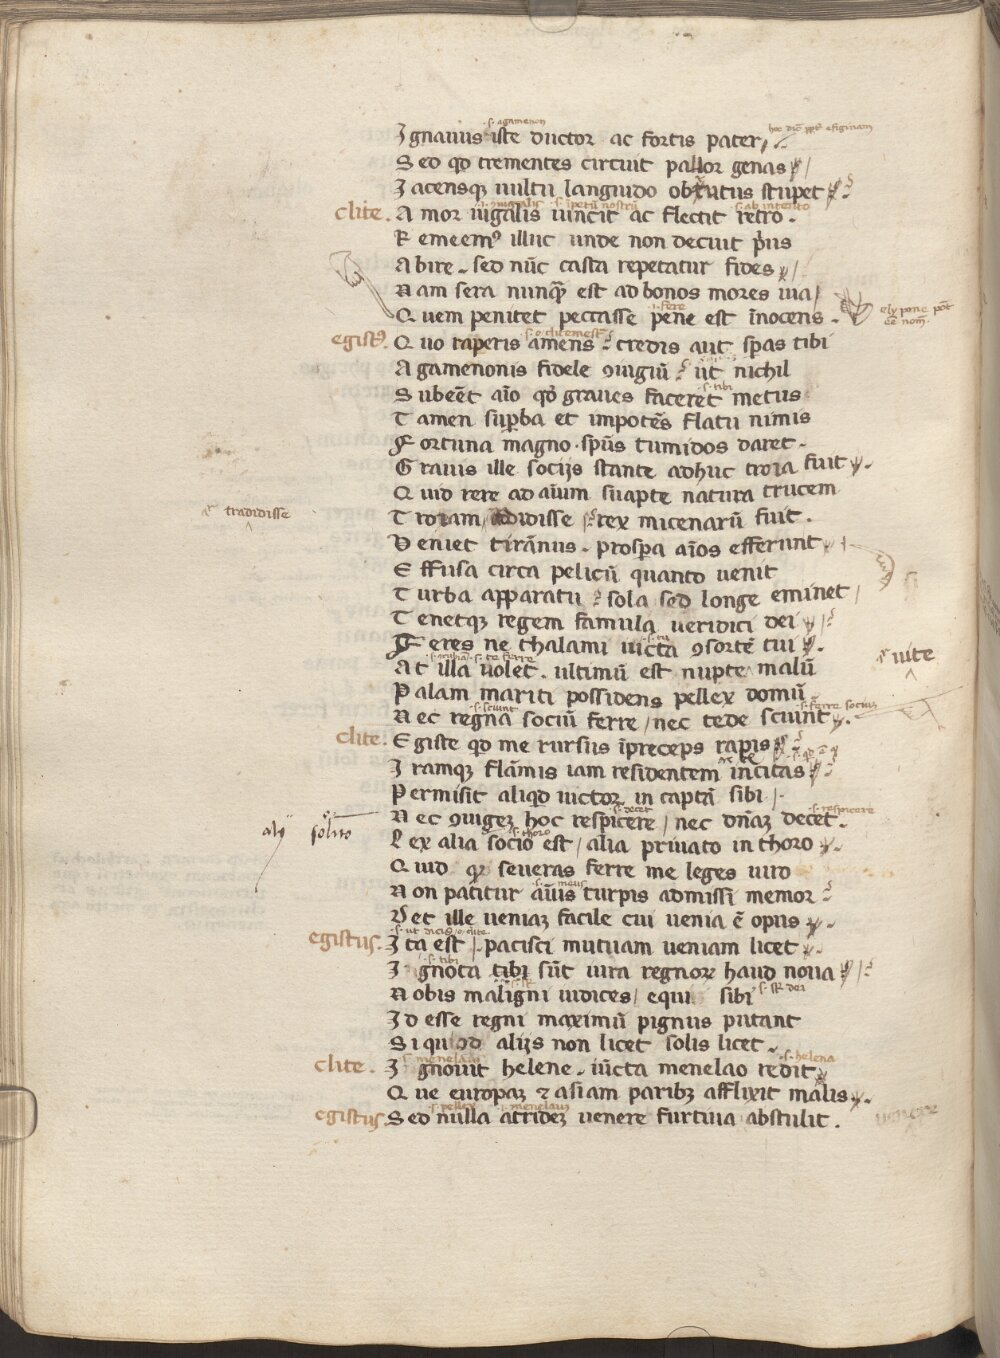 s. agamenon
Ignauus iste ductor ac fortis pater
Sed qd trementes circuit pallor genas
Iacensqꝫ uultu languido obtutus stupet
clite. Amor iugalis uincit ac flectit retro.
Remeemꝰ illuc unde non decuit pͥus
Abire. sed nūc casta repetatur fides
Nam sera nunqꝫ est ad bonos mores uia
s. fere
Quem penitet peccasse pene est īnocens.
egistꝰ. Quo raperis amens credis aut spas tibi
Agamenonis fidele ꝯiugiū ut nichil
s. tibi
Subeēt aīo qđ graues faceret metus
Tamen suꝑba et impotēs flatu nimis
Fortuna magno spūs tumidos daret.
Grauis ille socijs stante adhuc troia fuit.
Quid rere ad aīum suapte natura trucem
tradidisse
Troiam addidisse rex micenarū fuit.
Veniet tirānus. prosꝑa aīos efferunt
Effusa circa pelicū quanto uenit
Turba apparatu sola sed longe eminet
Tenetqꝫ regem famula ueridici dei
Feres ne thalami uicta ꝯsortē tui
uite
At illa uolet. ultimū est nupte malū
Palam mariti possidens pellex domū
s. sciunt
Nec regna sociū ferre nec tede sciunt.
clite. Egiste qd me rursus īpreceps rapis
Iramqꝫ flāmis iam residentem incitas
Permisit aliqd uictor in captā sibi
s. decet s. respicere
Nec ꝯiugeꝫ hoc respicere nec dnāꝫ decet.
alij solito
s. thoro
Lex alia socio est alia priuato in thoro
Quid qꝫ seueras ferre me leges uiro
Non patitur aīus turpis admissi memor
Det ille ueniaꝫ facile cui uenia ē opus
egistus. Ita est pacisci mutuam ueniam licet
s. tibi
Ignota tibi sūt iura regnoꝝ haud noua
Nobis maligni iudices equi sibi
Id esse regni maximū pignus putant
Si quod alijs non licet solis licet.
s. menelaus s. helena
clite. Ignouit helene. iūcta menelao redit
Que europaꝫ ⁊ asiam paribꝫ afflixit malis.
s. pellex s. menelaus
egistus Sed nulla atrideꝫ uenere furtiua abstulit.